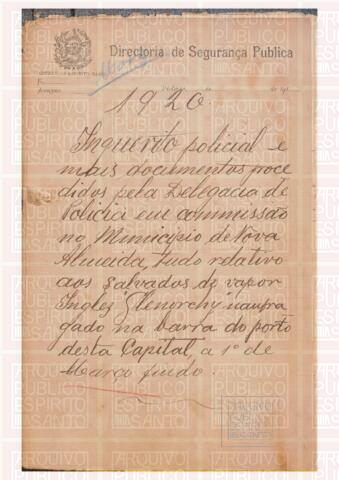 Directoria de Segurança Publica
1920
Inquerito policial e
mais documentos proce
didos pela Delegacia de
Policia em commissão
no Municipio de Nova
Almeida, tudo relativo
aos salvados do vapor
Inglez "Glenorchy" naufra
gado na barra do porto
desta Capital, a 1º de
Março findo.
ARQUIVO
PÚBLICO
ESPIRITO
SANTO